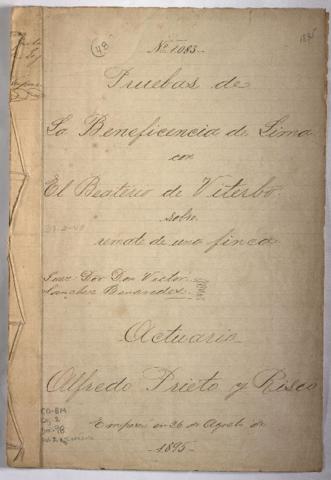 48
Nº 1.083-
1895
Pruebas de
La Beneficencia de Lima
con
El Beaterio de Viterbo
sobre
remate de una finca
Juez Dor Don Victor
Sanchez Benavides.
Actuario
Alfredo Prieto y Risco
Empieza en 26 de Agosto de
-1895-
CO-BM